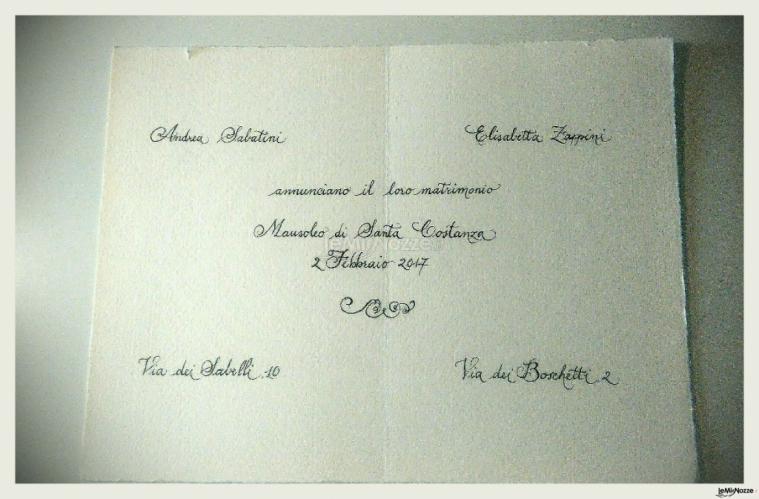 Andrea Sabatini Elisabetta Zappini
annunciano il loro matrimonio
Mausoleo di Santa Costanza
2 Febbraio 2017
Via dei Sabelli 10 Via dei Boschetti 2
leMieNozze